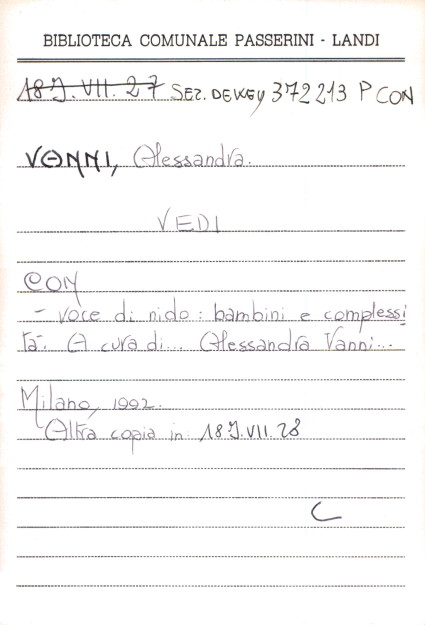 BIBLIOTECA COMUNALE PASSERINI - LANDI
18 J. VII. 27 SEZ. DEWEY 372213 P CON
VANNI, Alessandra.
VEDI
CON
- voce di nido: bambini e complessi
tà. A cura di... Alessandra Vanni...
Milano, 1992.
Altra copia in: 18 J. VII. 28
C